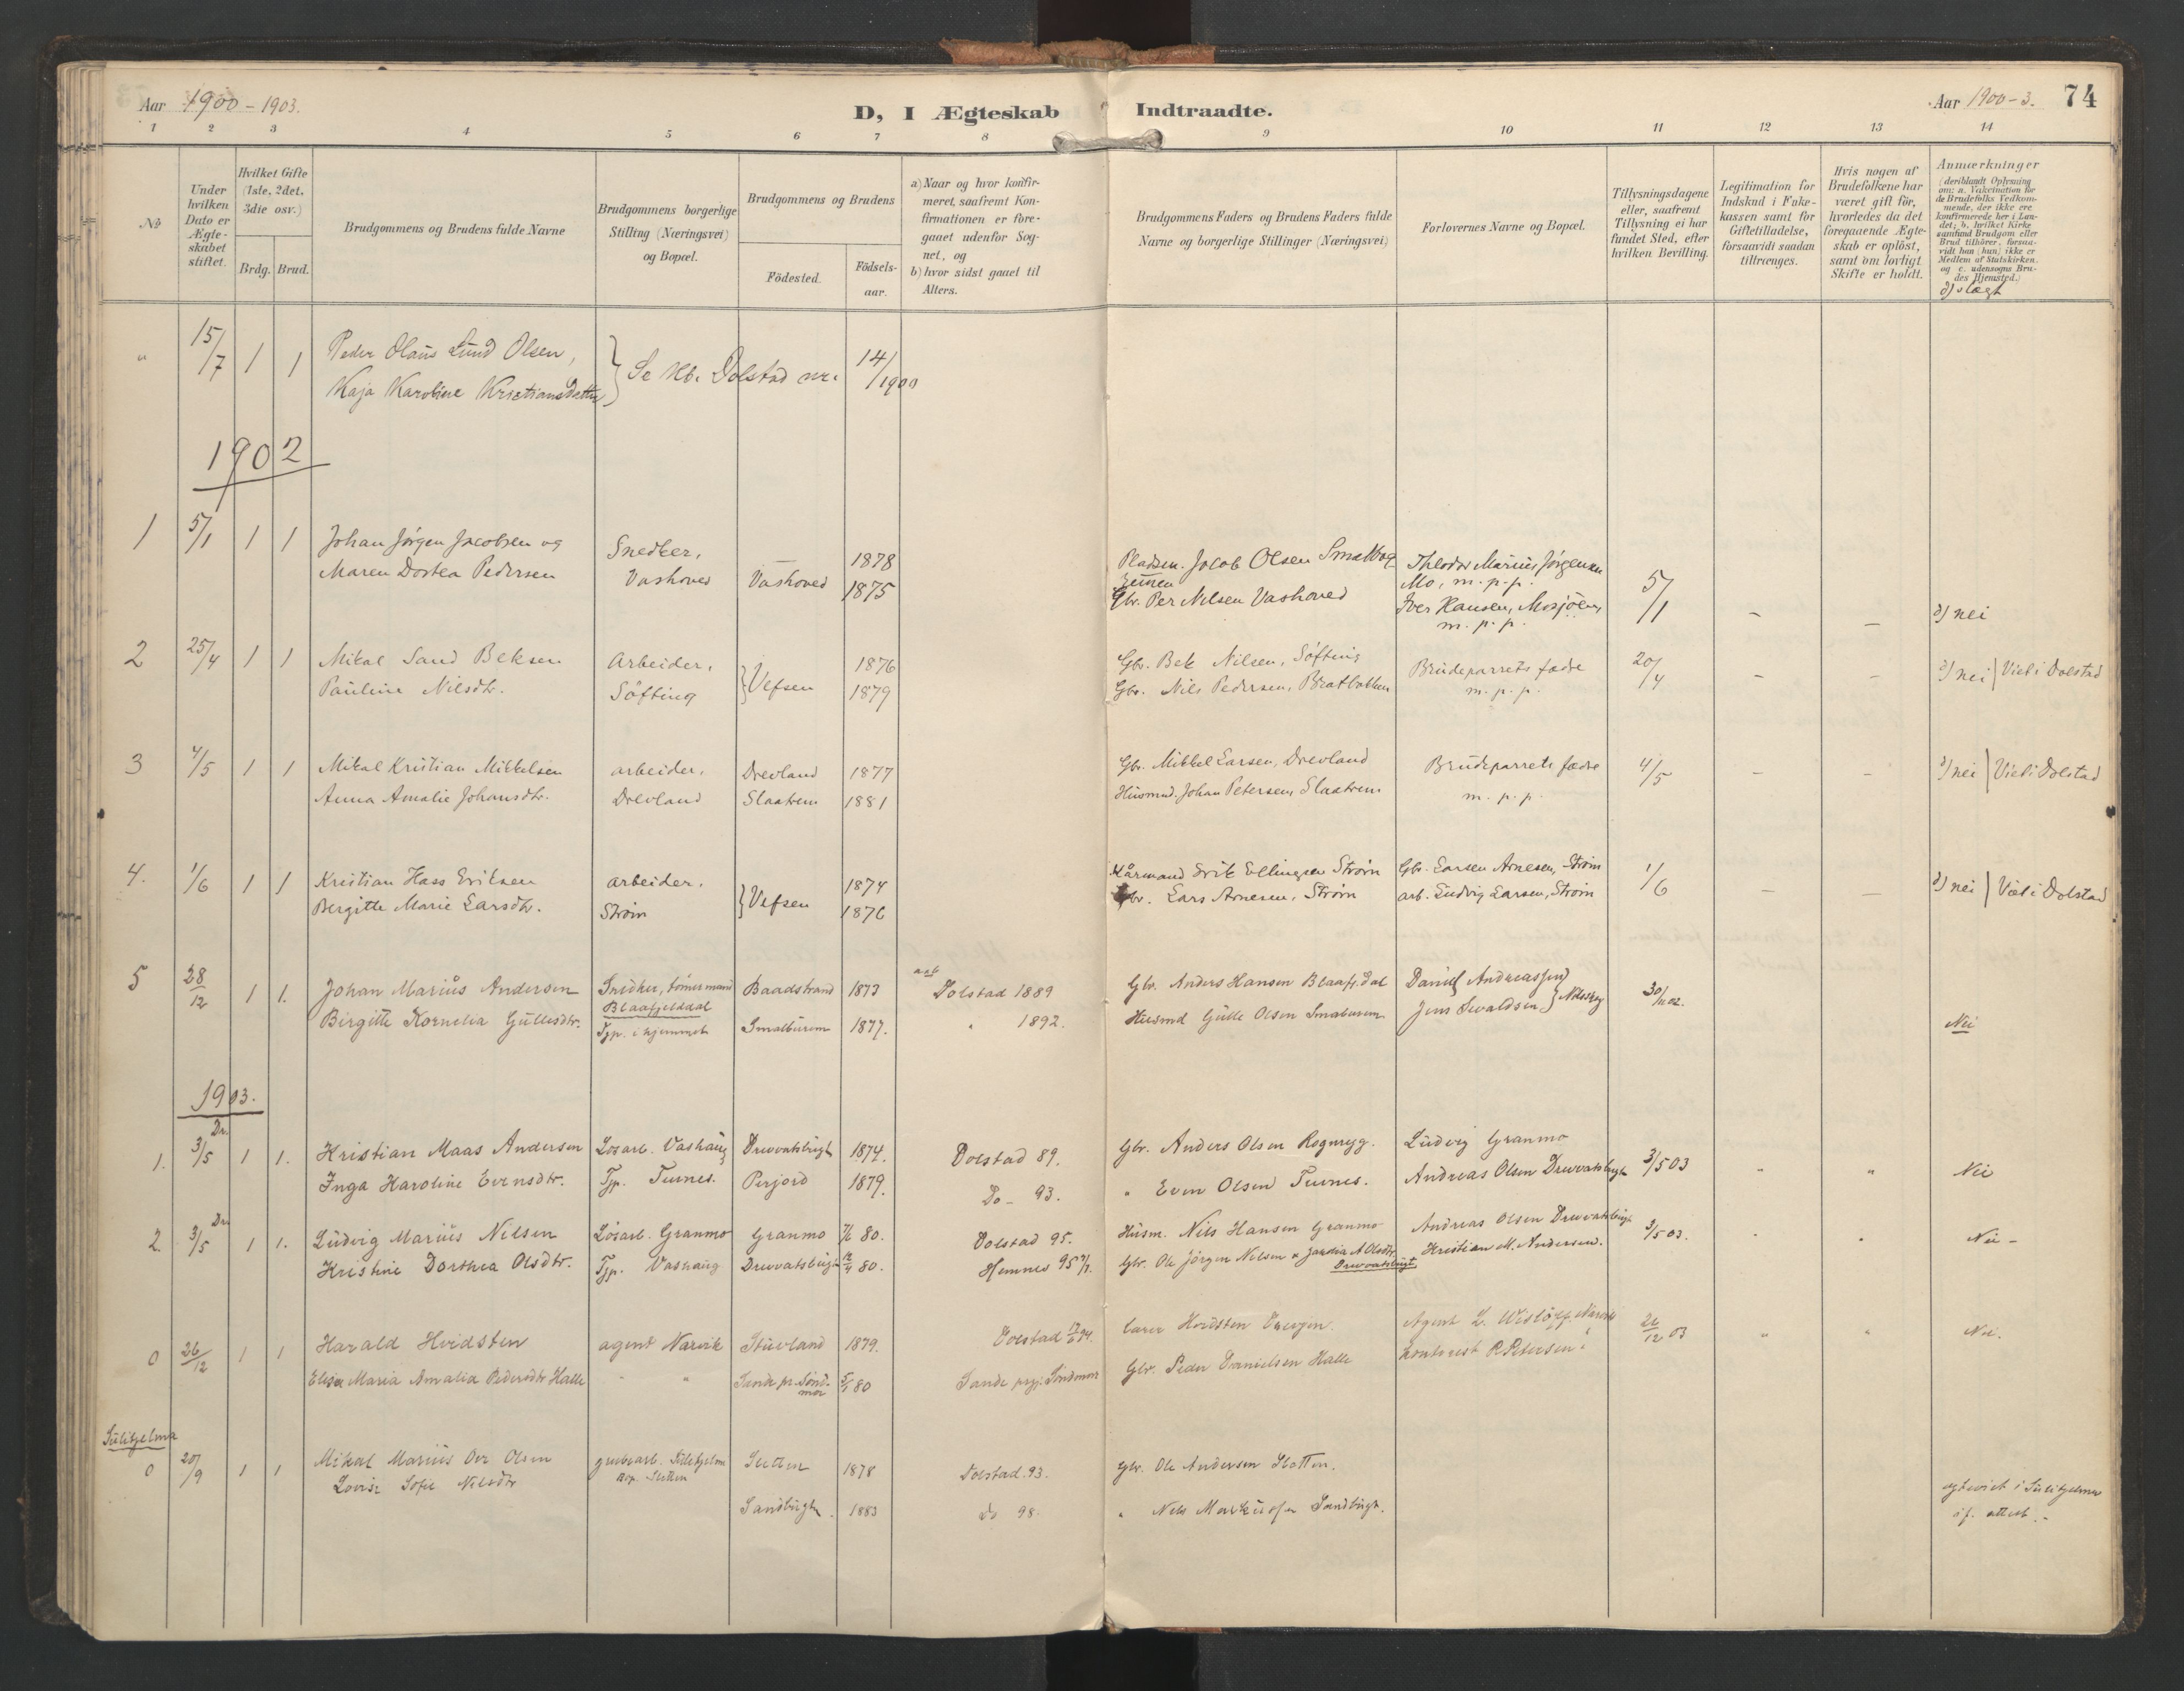 Aar 1900-1903.
D, I Ægteskab Indtraadte.
Aar 1900-3. 74
1 2 3 4 5 6 7 8 9 10 11 12 13 14
№
Under hvilken Dato er Ægte-skabet stiftet.
Hvilket Gifte (1ste, 2det, 3die osv.)
Brdg. Brud.
Brudgommens og Brudens fulde Navne
Brudgommens borgerlige Stilling (Næringsvei) og Bopæl.
Brudgommens og Brudens
Födested.
Födsels-aar.
a) Naar og hvor konfir-meret, saafremt Kon-firmationen er fore-gaaet udenfor Sog-net, og
b) hvor sidst gaaet til Alters.
Brudgommens Faders og Brudens Faders fulde Navne og borgerlige Stillinger (Næringsvei)
Forlovernes Navne og Bopæl.
Tillysningsdagene eller, saafremt Tillysning ei har fundet Sted, efter hvilken Bevilling.
Legitimation for Indskud i Enke-kassen samt for Giftetilladelse, forsaavidt saadan tiltrænges.
Hvis nogen af Brudefolkene har været gift för, hvorledes da det foregaaende Ægte-skab er oplöst, samt om lovligt Skifte er holdt.
Anmærkninger
(deriblandt Oplysning om: a. Vakcination for de Brudefolks Vedkom-mende, der ikke ere konfirmerede her i Lan-det; b. hvilket Kirke-samfund Brudgom eller Brud tilhörer, forsaa-vidt han (hun) ikke er Medlem af Statskirken, og c. udensogns Bru-des Hjemsted.)
d) slægt
" 15/7 1 1 Peder Olaus Lund Olsen,
Kaja Karoline Kristiansdatter } Se Kb. Dolstad nr. 14/1900
1902
1 5/1 1 1 Johan Jørgen Jacobsen og Snedker, 1878 Pladsm. Jacob Olsen Theodor Marius Jørgensen
Maren Dortea Pedersen Vashoved Vashoved 1875 Mo, m.p.p. 5/1
Gbr. Per Nilsen Vashoved Iver Hansen, Mosjøen, m.p.p. - - d) nei
2 25/4 1 1 Mikal Sand Beksen Arbeider, } Vefsen 1876 Gbr. Bek Nilsen, Søfting Brudeparrets fædre 20/4 - - d) nei } Viet i Dolstad
Pauline Nilsdtr. Søfting 1879 Gbr. Nils Pedersen, Bratbakken m.p.p.
3 4/5 1 1 Mikal Kristian Mikkelsen arbeider, Drevland 1877 Gbr. Mikkel Larsen, Drevland Brudeparrets fædre 4/5 - - d) nei } Viet i Dolstad
Anna Amalie Johansdtr. Drevland Slaatrem 1881 Husmd. Johan Petersen, Slaatrem m.p.p.
4. 1/6 1 1 Kristian Hass Eriksen arbeider. } Vefsen 1874 Kårmand Erik Ellingsen Strøm Gbr. Larsen Arnesen, Strøm 1/6 - - d) nei } Viet i Dolstad
Bergitte Marie Larsdtr. Strøm 1876 Gbr. Lars Arnesen, Strøm arb. Ludvig Larsen, Strøm
5 28/12 1 1. Johan Marius Andersen Snidker, tømermand Baadstrand 1873 Dolstad 1889 Gbr. Anders Hansen Blaafj.dal Daniel Andreassen
Blaafjelddal
Birgitte Kornelia Gullesdtr. Tjp. i hjemmet Smalburem 1877. " 1892. Husmd Gulle Olsen Smaburem Jens Sevaldsen 30/11 02. Nei
1903.
1. Dr. 3/5 1 1. Kristian Maas Andersen Løsarb. Vashaug Drevvatsbugt 1874. Dolstad 89. Gbr. Anders Olsen Rognryg. Ludvig Granmo
Inga Karoline Evensdtr. Tjp. Turnes. Perjord 1879. Do- 93. " Even Olsen Turnes. Andreas Olsen Drevvatsbugt 3/5 03 " " Nei
2. Dr. 3/5 1 1. Ludvig Marius Nilsen Løsarb. Granmo Granmo 7/6 80. Dolstad 95. Husm. Nils Hansen Granmo Andreas Olsen Drevvatsbugt 3/5 03. " " Nei -
Kristine Dorthea Olsdtr. Tjp. Vashaug Drevvatsbugt 12/4 80. Hemnes 95 Gbr. Ole Jørgen Nilsen Kristian M. Andersen.
Drevvatsbugt
0 26/12 1 1 Harald Hvidsten agent Narvik Stuvland 1879. Dolstad Lærer Hvidsten Agent L. Wisløff, Narvik 26/12 03 " " Nei.
Elisa Maria Amalia Pedersdtr Halle " " Sande pr. Søndmør 5/1 80 Sande prgj. Søndmør Gbr. Peder Danielsen Halle Kontorist P. Petersen "
Sulitjelma
0 20/9 1 1 Mikal Marius Ovr Olsen grubearb. Sulitjelma Sletten 1878 Dolstad. 93. Gbr. Ole Andersen Slotten.
Lovise Sofie Nilsdtr Sandbugt. 1883 do 98. " Nils Markussen Sandbugt.
egteviet i Sulitjelma
if. attest. -